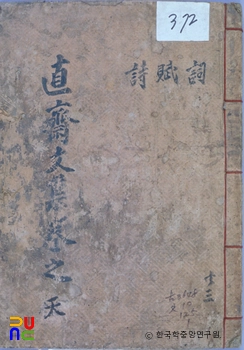 372
詞賦詩
直齋文集卷之天
共三
ⓒ 한국학중앙연구원